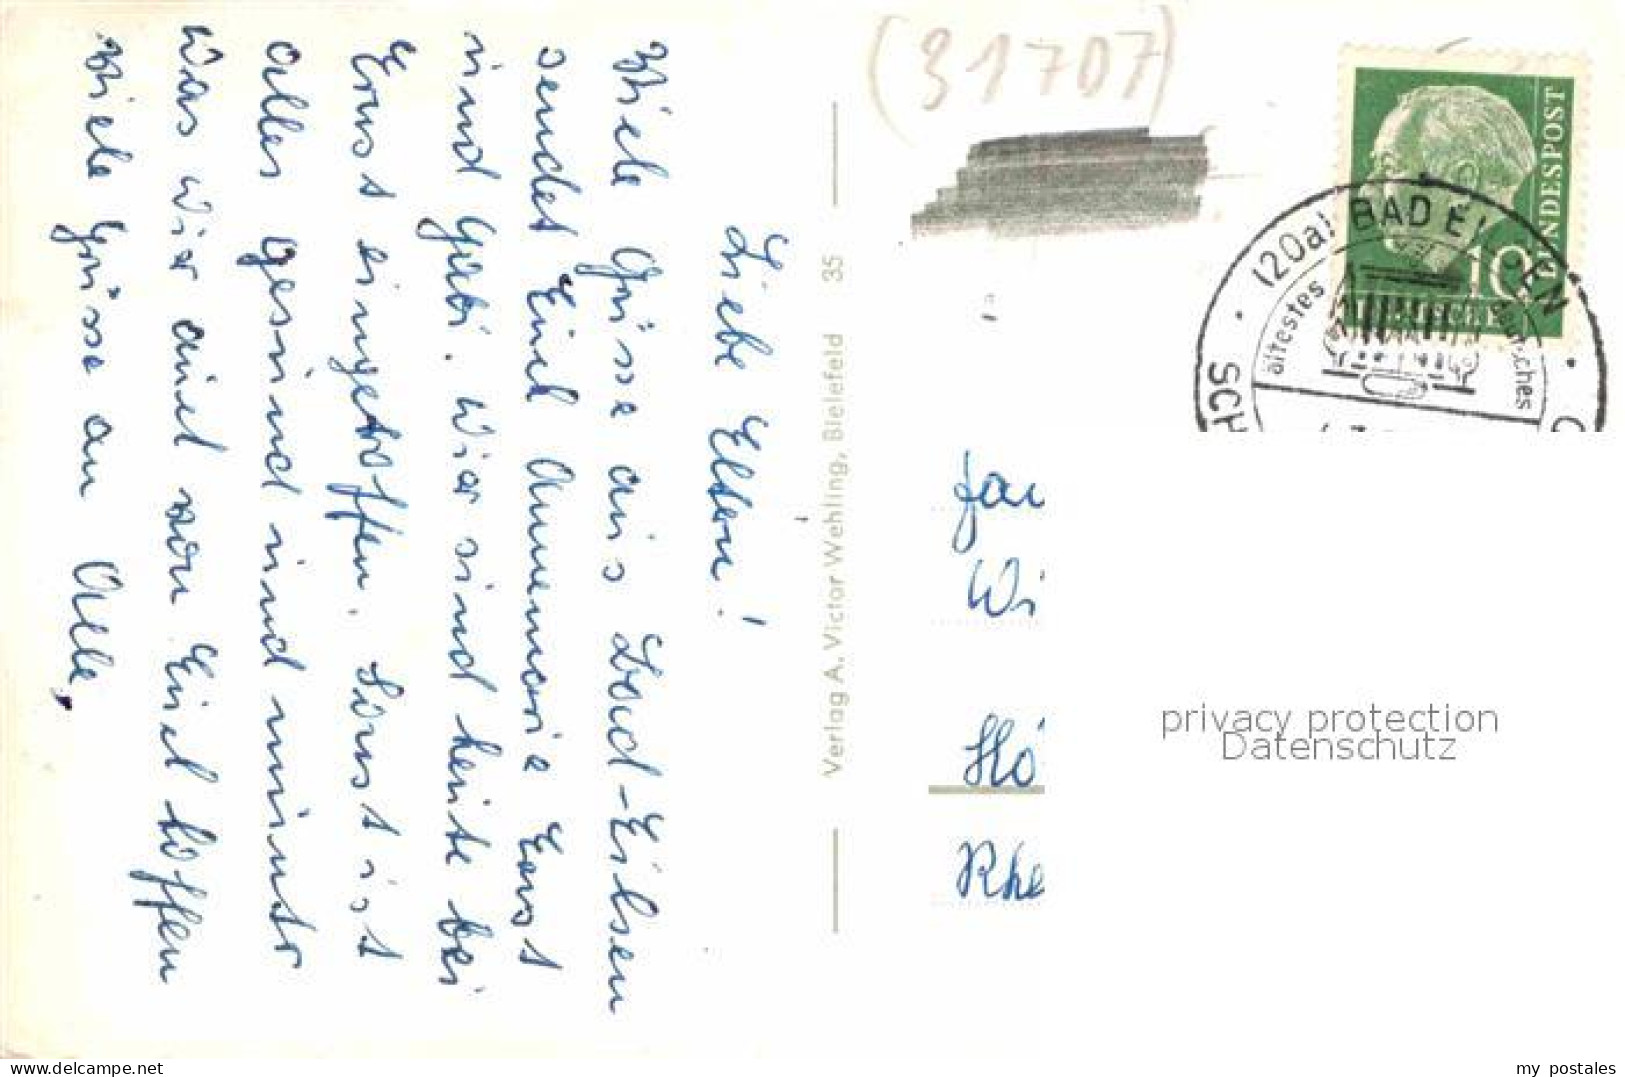 Liebe Eltern!
Viele Grüsse aus Bad-Eilsen
sendet Emil Annemarie Ernst
und Gabi. Wir sind heute bei
Ernst eingetroffen. Sonst ist
alles gesund und munter
was wir auch von Euch hoffen
Viele Grüsse an Alle.
Verlag A. Victor Wehling, Bielefeld 35
(31707)
DEUTSCHE BUNDESPOST
10
(20a) BAD EILSEN
ältestes deutsches
SCH
Fau
Wi
Hö
Rhe
privacy protection
Datenschutz
www.delcampe.net
my_postales